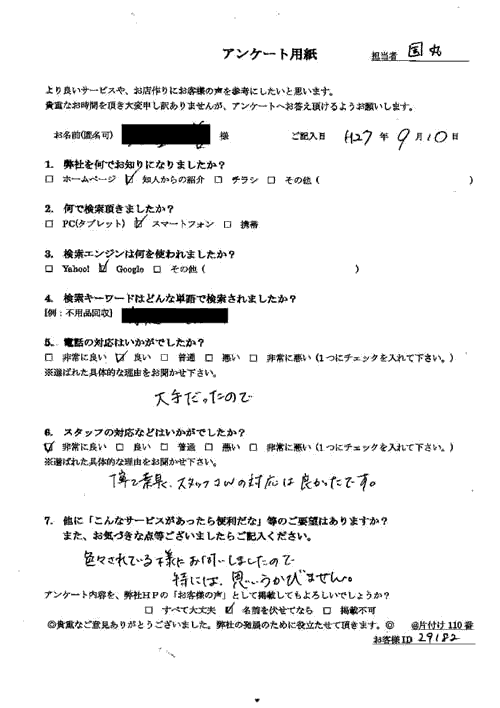 アンケート用紙
担当者 国丸
より良いサービスや、お店作りにお客様の声を参考にしたいと思います。
貴重なお時間を頂き大変申し訳ありませんが、アンケートへお答え頂けるようお願いします。
お名前(匿名可) 様 ご記入日 H27年 9月10日
1. 弊社を何でお知りになりましたか?
□ ホームページ ☑ 知人からの紹介 □ チラシ □ その他 ( )
2. 何で検索頂きましたか?
□ PC(タブレット) ☑ スマートフォン □ 携帯
3. 検索エンジンは何を使われましたか?
□ Yahoo! ☑ Google □ その他 ( )
4. 検索キーワードはどんな単語で検索されましたか?
[例:不用品回収]
5. 電話の対応はいかがでしたか?
□ 非常に良い ☑ 良い □ 普通 □ 悪い □ 非常に悪い (1つにチェックを入れて下さい。)
※選ばれた具体的な理由をお聞かせ下さい。
大手だったので
6. スタッフの対応などはいかがでしたか?
☑ 非常に良い □ 良い □ 普通 □ 悪い □ 非常に悪い (1つにチェックを入れて下さい。)
※選ばれた具体的な理由をお聞かせ下さい。
スタッフさんの対応は良かったです。
7. 他に「こんなサービスがあったら便利だな」等のご要望はありますか?
また、お気づきな点等ございましたらご記入ください。
色々されている様にお伺いしましたので
特には、思いうかびません。
アンケート内容を、弊社HPの「お客様の声」として掲載してもよろしいでしょうか?
□ すべて大丈夫 ☑ 名前を伏せてなら □ 掲載不可
◎貴重なご意見ありがとうございました。弊社の発展のために役立たせて頂きます。◎ @片付け110番
お客様ID 29182